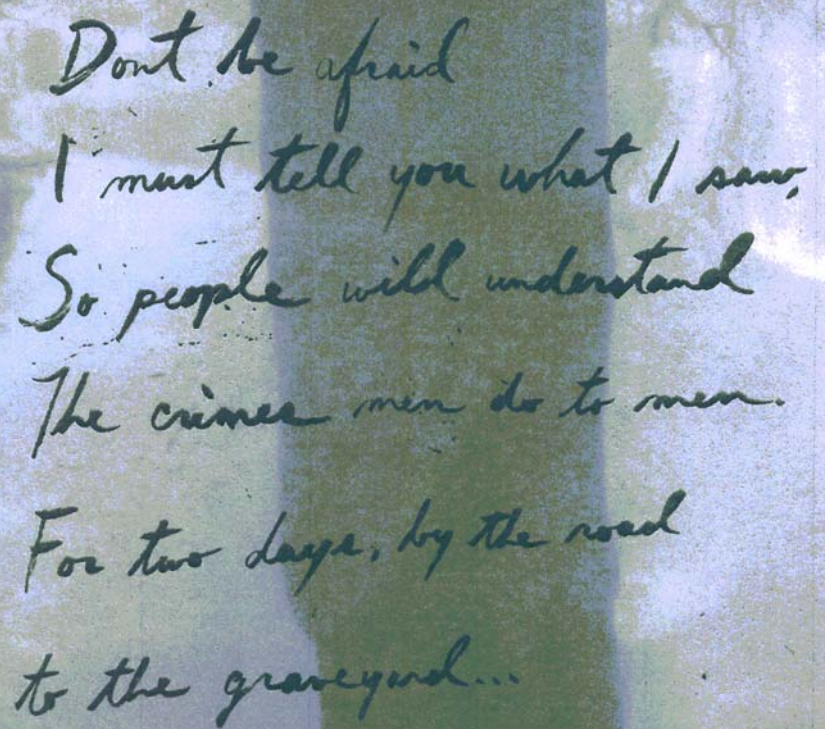 Dont be afraid
I must tell you what I saw,
So people will understand
The crimes men do to men.
For two days, by the road
to the graveyard...